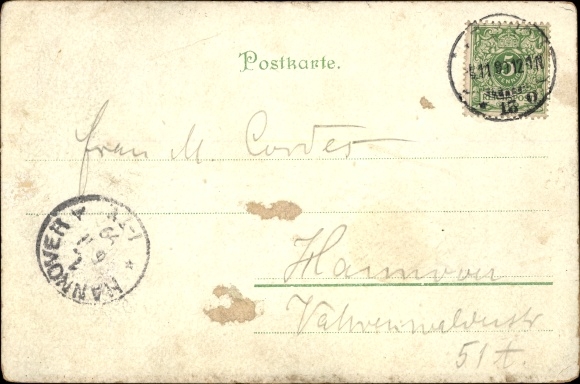 Postkarte.
5
PFENNIG
12-1N
* 15 o
Frau M. Cordes
HANNOVER
* HANNOVER *
Hannover
Vahrenwalderstr
51 I.